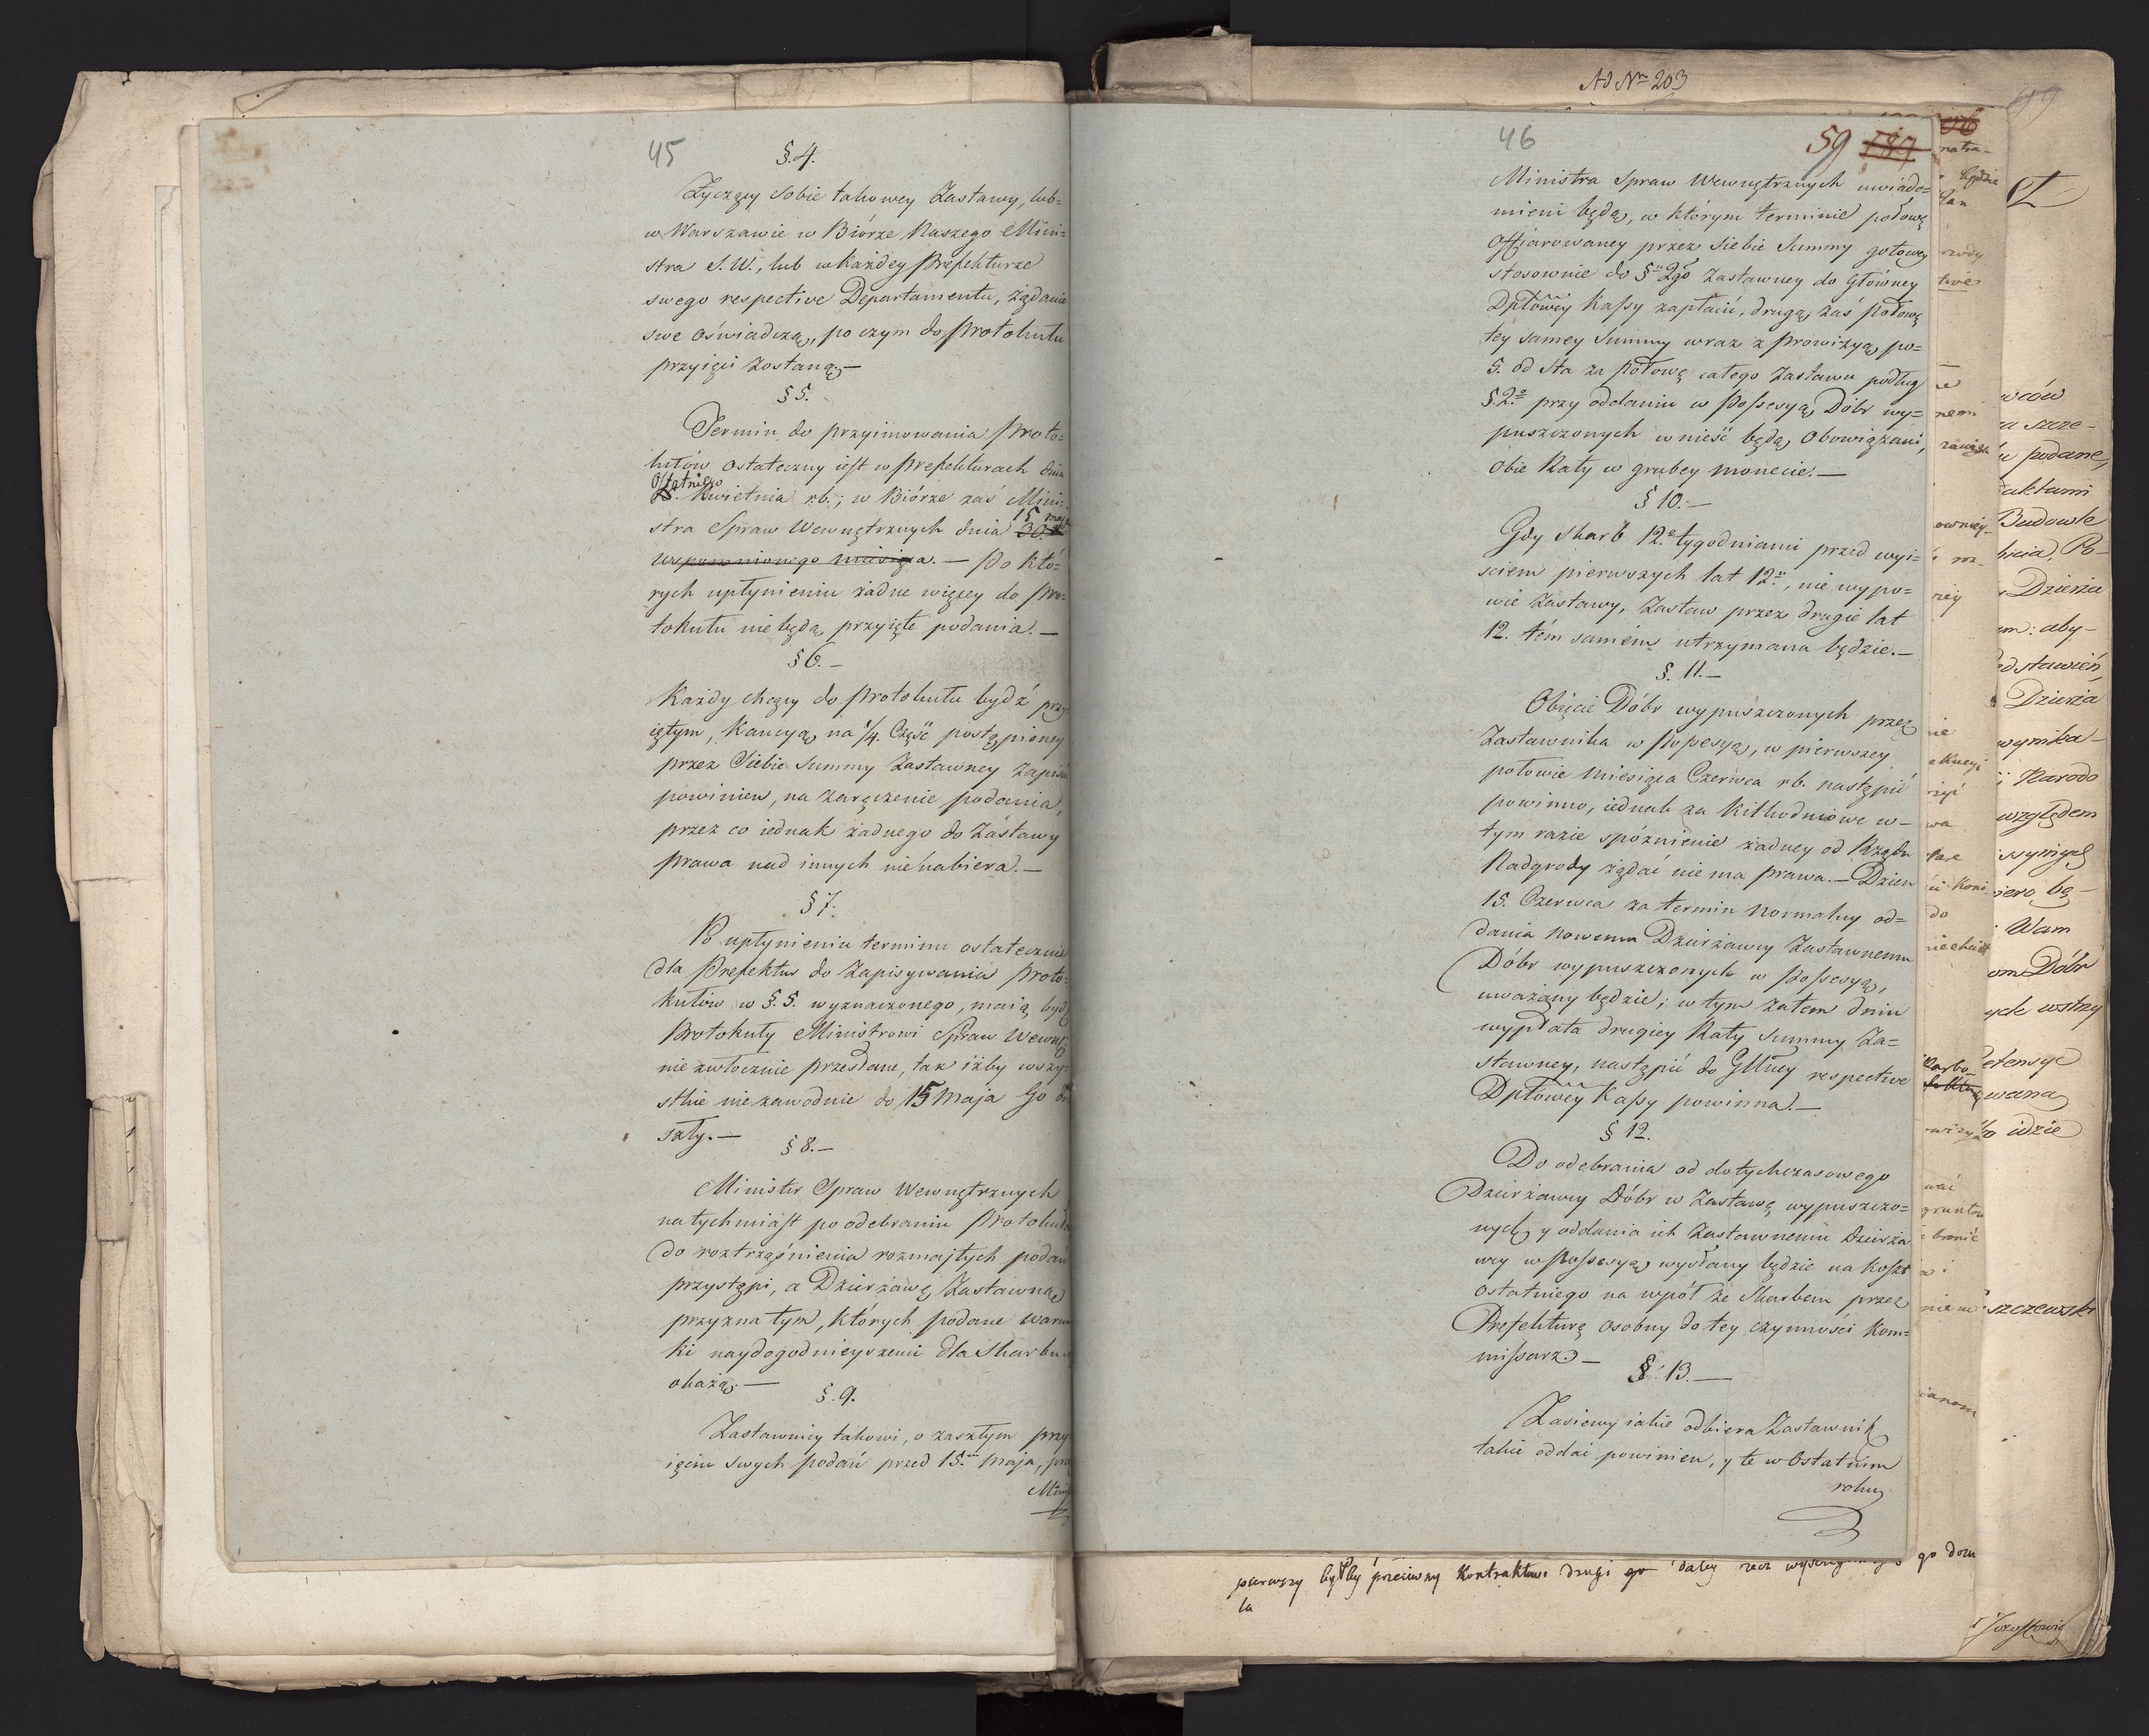 45
§.4.
Życzący sobie takowey Zastawy, lub=
w Warszawie w Biórze Naszego Mini=
stra S.W., lub w każdey Prefekturze
swego respective Departamentu, żądanie
swe oświadczą, po czym do Protokułu
przyięci zostaną.—
§ 5.
Termin do przyimowania Proto=
kułów ostateczny iest w Prefekturach dnia
Ostatniego
Kwietnia rb.; w Biórze zaś Mini=
stra Spraw Wewnętrznych dnia 15 maja 30.
wspomnionego miesiąca. — Po któ=
rych upłynieniu żadne więcey do Pro=
tokułu nie będą przyięte podania.—
§ 6.—
Każdy chcący do Protokułu bydź przy
iętym, Kaucyą na 1/4. Część postąpioney
przez Siebie Summy Zastawney zapisać
powinien, na zaręczenie podania,
przez co iednak żadnego do Zastawy
prawa nad innych nie nabiera.—
§ 7.
Po upłynieniu terminu ostatecznie
dla Prefektur do Zapisywania Proto=
kułów w §. 5. wyznaczonego, maią bydź
Protokuły Ministrowi Spraw Wewnę:
niezwłocznie przesłane, tak iżby wszy=
stkie niezawodnie do 15 Maja Go do=
szły.—
§ 8.—
Minister Spraw Wewnętrznych
natychmiast po odebraniu Protokułu
do roztrząśnienia rozmajtych podań
przystąpi, a Dzierżawę Zastawną
przyzna tym, których podane warun
ki naydogodnieyszemi dla Skarbu
okażą.—
§. 9.
Zastawnicy takowi, o zaszłym przy
ięciu swych podań przed 15.m Maja, przez
Mini
Ad Nr 203
46
59 589
Ministra Spraw Wewnętrznych uwiado=
mieni będą, w którym terminie połowę
Offiarowaney przez siebie Summy gotowey
stosownie do §u 2go Zastawney do Główney
Dptowey Kassy zapłacić, drugą zaś Połowę
tey samey Summy wraz z Prowizyą po=
5. od Sta za Połowę całego Zastawu podług
§. 2.o przy oddaniu w Possesyą Dóbr wy=
puszczonych wnieść będą Obowiązani,
Obie Raty w grubey monecie.—
§ 10.—
Gdy Skarb 12.e tygodniami przed wyi=
sciem pierwszych lat 12.u, nie wypo=
wie Zastawy, Zastaw przez drugie lat
12. tém samém utrzymana będzie.—
§. 11.—
Obięcie Dóbr wypuszczonych przez
Zastawnika w Possesyą, w pierwszey
połowie Miesiąca Czerwca rb. nastąpić
powinno, iednak za kilkodniowe w—
tym razie spóznienie żadney od Rządu
Nadgrody żądać nie ma prawa.— Dzien
15. Czerwca za termin Normalny od=
dania nowemu Dzierżawcy Zastawnemu
Dóbr wypuszczonych w Possesyą,
uważany będzie; w tym zatem dniu
wypłata drugiey Raty Summy Za=
stawney, nastąpić do Głłney respective
Dptowey Kassy powinna.—
§ 12.
Do odebrania od dotychczasowego
Dzierżawcy Dóbr w Zastawę wypuszczo=
nych, y oddania ich Zastawnemu Dzierża
wcy w Possesyą wysłany będzie na koszt
ostatniego na wpół ze Skarbem przez
Prefekturę osobny do tey czynności Kom=
missarz.—
§. 13.—
Zasiewy iakie odbiera Zastawnik
takie oddać powinien, y te w Ostatnim
roku
pierwszy byłby przeciwny Kontraktowi drugi go daley go dozu
la
wców
za szcze-
podane,
aktami
Budowle
Po-
Dzierża
aby-
Dzierża
wynika-
Narodo
względem
Wam
Dóbr
wstrzy
idzie
szczewski